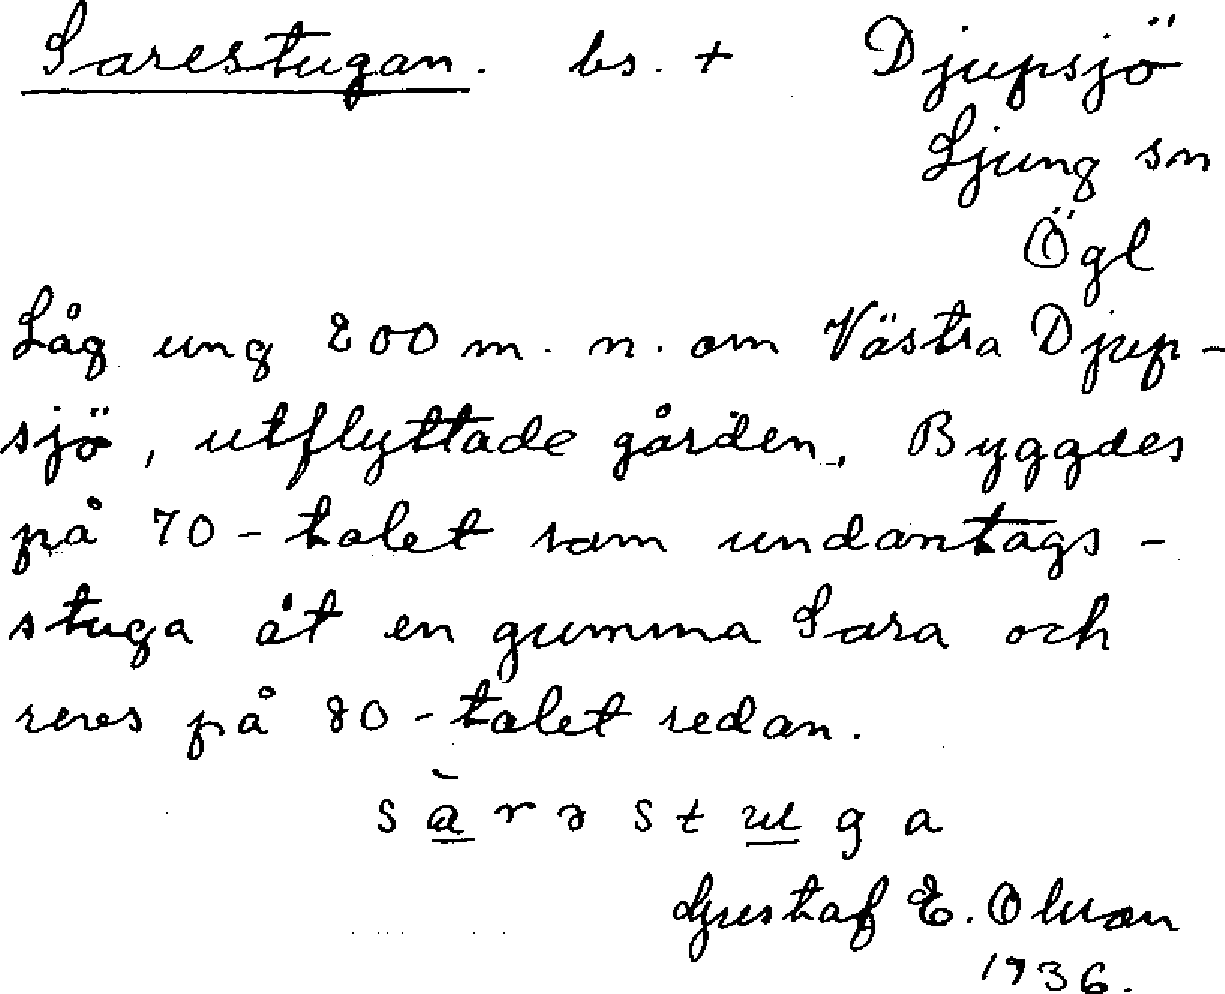 Sarestugan. bs. + Djupsjö
Ljung sn
Ögl
Låg ung 200 m. n. om Västra Djup-
sjö, utflyttade gården. Byggdes
på 70-talet som undantags-
stuga åt en gumma Sara och
reves på 80-talet redan.
s à r ə s t u g a
Gustaf E. Olson
1936.